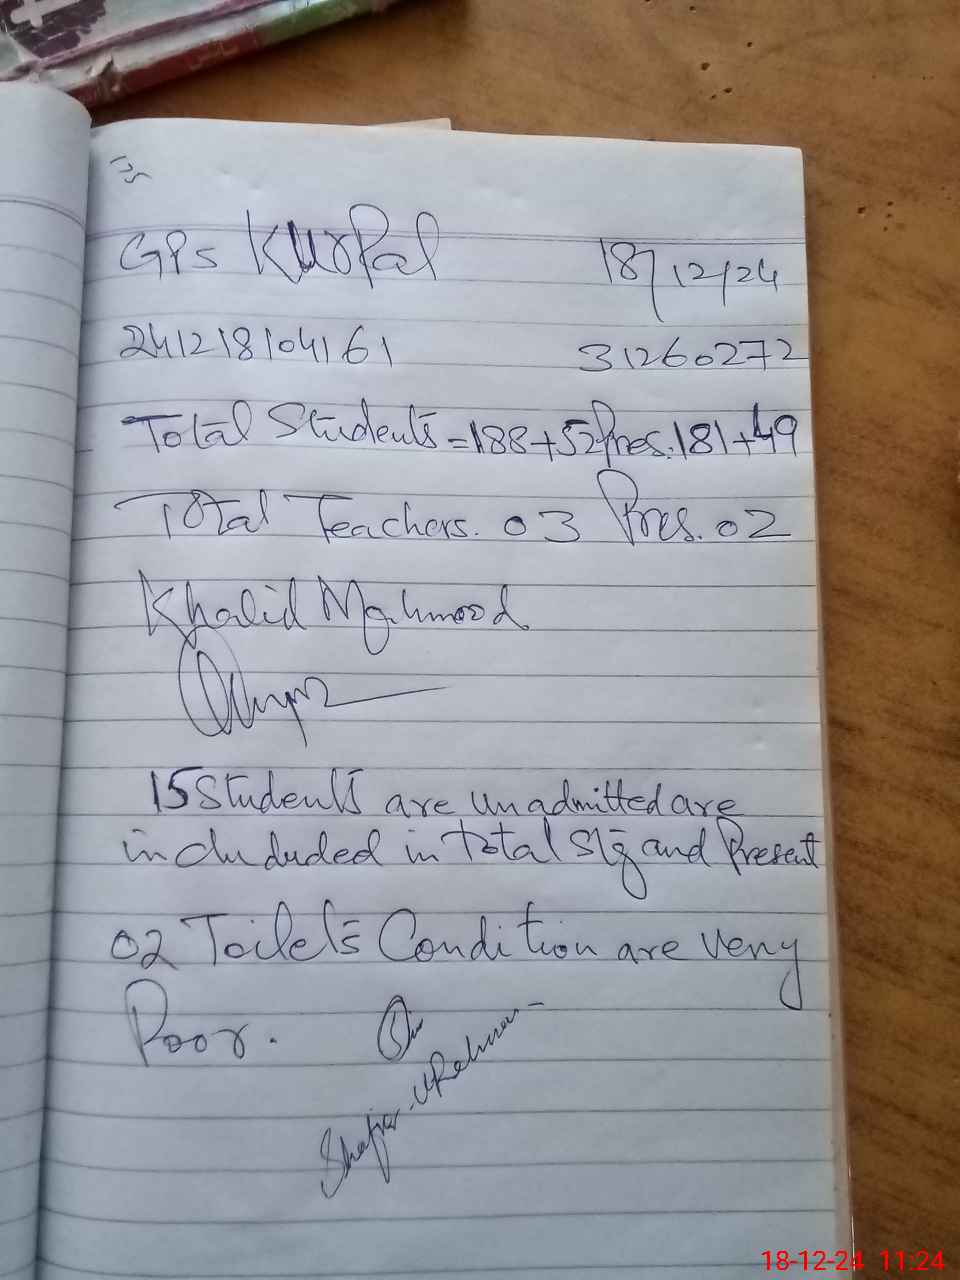 GPs Kurpal 18/12/24
241218104161 31260272
Total Students = 188+52 Pres. 181+49
Total Teachers. 03 Pres. 02
Khalid Mahmood
15 Students are unadmitted are
incdududed in total Stg and Present
02 Toilets Condition are very
Poor.
18-12-24 11:24